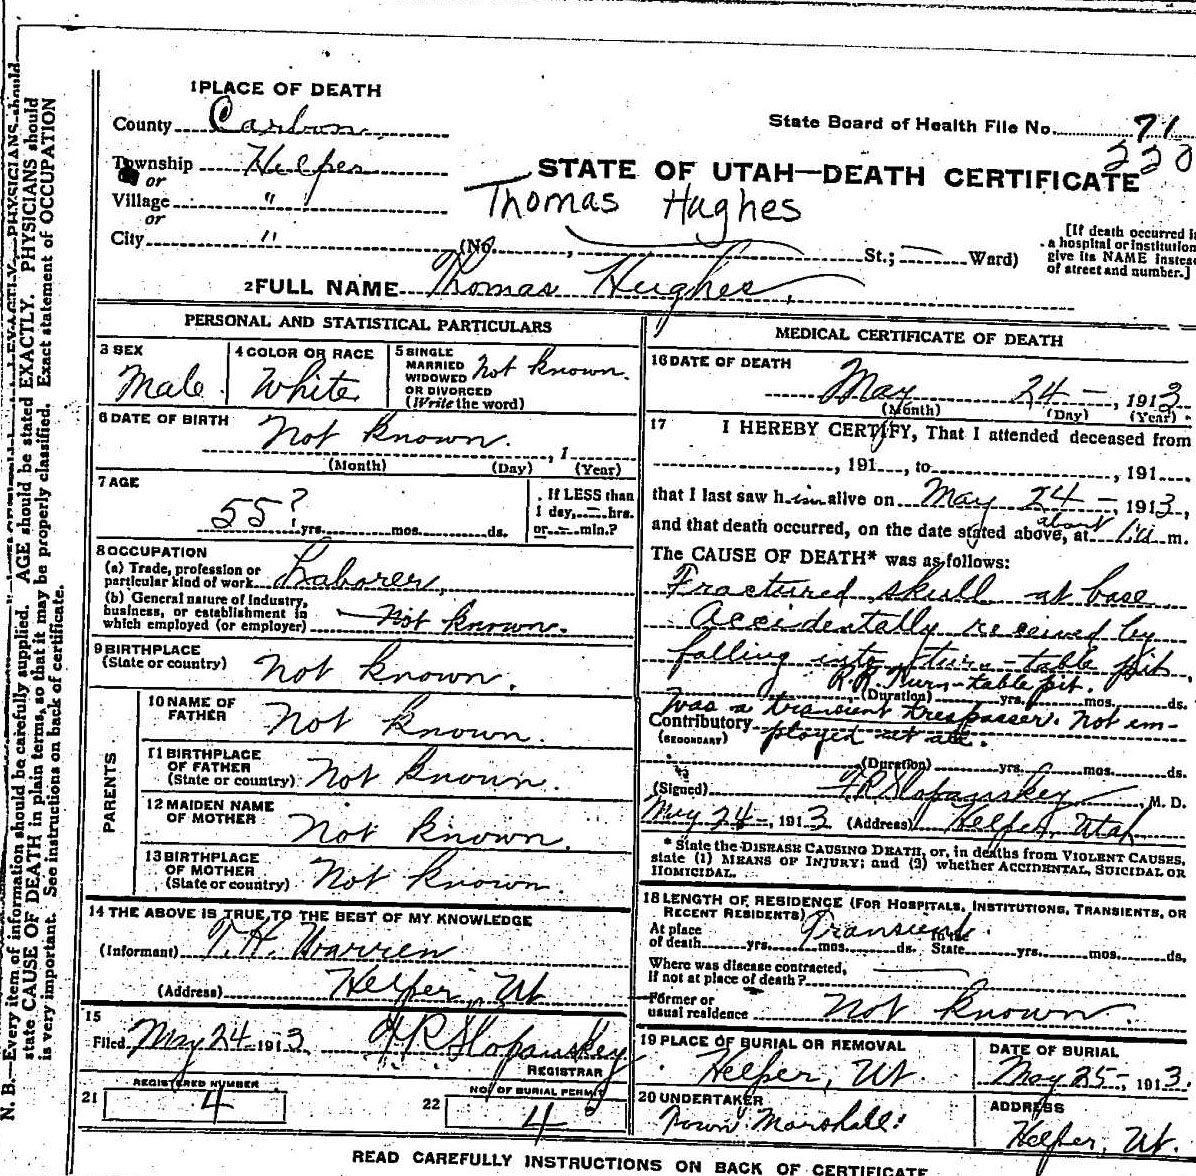 1 PLACE OF DEATH
County Carbon
State Board of Health File No. 71
220
Township Helper
or
STATE OF UTAH—DEATH CERTIFICATE
Village "
Thomas Hughes
or
City "
(No. , St.; Ward)
[If death occurred in
a hospital or institution
give its NAME instead
of street and number.]
2 FULL NAME Thomas Hughes
PERSONAL AND STATISTICAL PARTICULARS
3 SEX
Male
4 COLOR OR RACE
White
5 SINGLE
MARRIED
WIDOWED
OR DIVORCED
(Write the word)
Not known.
6 DATE OF BIRTH
Not known.
, 1
(Month) (Day) (Year)
7 AGE
55? yrs. mos. ds.
If LESS than
1 day, hrs.
or min.?
8 OCCUPATION
(a) Trade, profession or
particular kind of work Laborer
(b) General nature of Industry,
business, or establishment in
which employed (or employer) Not known.
9 BIRTHPLACE
(State or country) Not known.
PARENTS
10 NAME OF
FATHER Not known.
11 BIRTHPLACE
OF FATHER
(State or country) Not known.
12 MAIDEN NAME
OF MOTHER Not known.
13 BIRTHPLACE
OF MOTHER
(State or country) Not known.
14 THE ABOVE IS TRUE TO THE BEST OF MY KNOWLEDGE
(Informant) T. H. Warren
(Address) Helper, Ut
15
Filed May 24 1913 F R Slopanskey
REGISTRAR
21 REGISTERED NUMBER
4
22 NO. OF BURIAL PERMIT
4
MEDICAL CERTIFICATE OF DEATH
16 DATE OF DEATH
May 24 — , 1913
(Month) (Day) (Year)
17 I HEREBY CERTIFY, That I attended deceased from
, 191 , to , 191
that I last saw him alive on May 24 — 1913,
and that death occurred, on the date stated above, at about 1 a m.
The CAUSE OF DEATH* was as follows:
Fractured skull at base
Accidentally received by
falling into turn-table pit.
R.R. Turn-table pit.
(Duration) yrs. mos. ds.
Was a transient trespasser. Not em-
Contributory ployed at all.
(SECONDARY)
(Duration) yrs. mos. ds.
(Signed) F R Slopanskey, M. D.
May 24 —, 1913 (Address) Helper, Utah
* State the DISEASE CAUSING DEATH, or, in deaths from VIOLENT CAUSES,
state (1) MEANS OF INJURY; and (2) whether ACCIDENTAL, SUICIDAL OR
HOMICIDAL.
18 LENGTH OF RESIDENCE (FOR HOSPITALS, INSTITUTIONS, TRANSIENTS, OR
RECENT RESIDENTS) Transient.
At place In the
of death yrs. mos. ds. State yrs. mos. ds.
Where was disease contracted,
if not at place of death?
Former or
usual residence Not known.
19 PLACE OF BURIAL OR REMOVAL
Helper, Ut
DATE OF BURIAL
May 25—, 1913.
20 UNDERTAKER
Town Marshall.
ADDRESS
Helper, Ut.
READ CAREFULLY INSTRUCTIONS ON BACK OF CERTIFICATE
N. B.—Every item of information should be carefully supplied. AGE should be stated EXACTLY. PHYSICIANS should
state CAUSE OF DEATH in plain terms, so that it may be properly classified. Exact statement of OCCUPATION
is very important. See instructions on back of certificate.